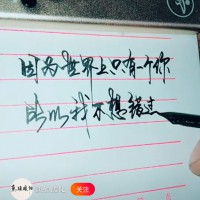 因为世界上只有一个你
所以我不想错过
关注